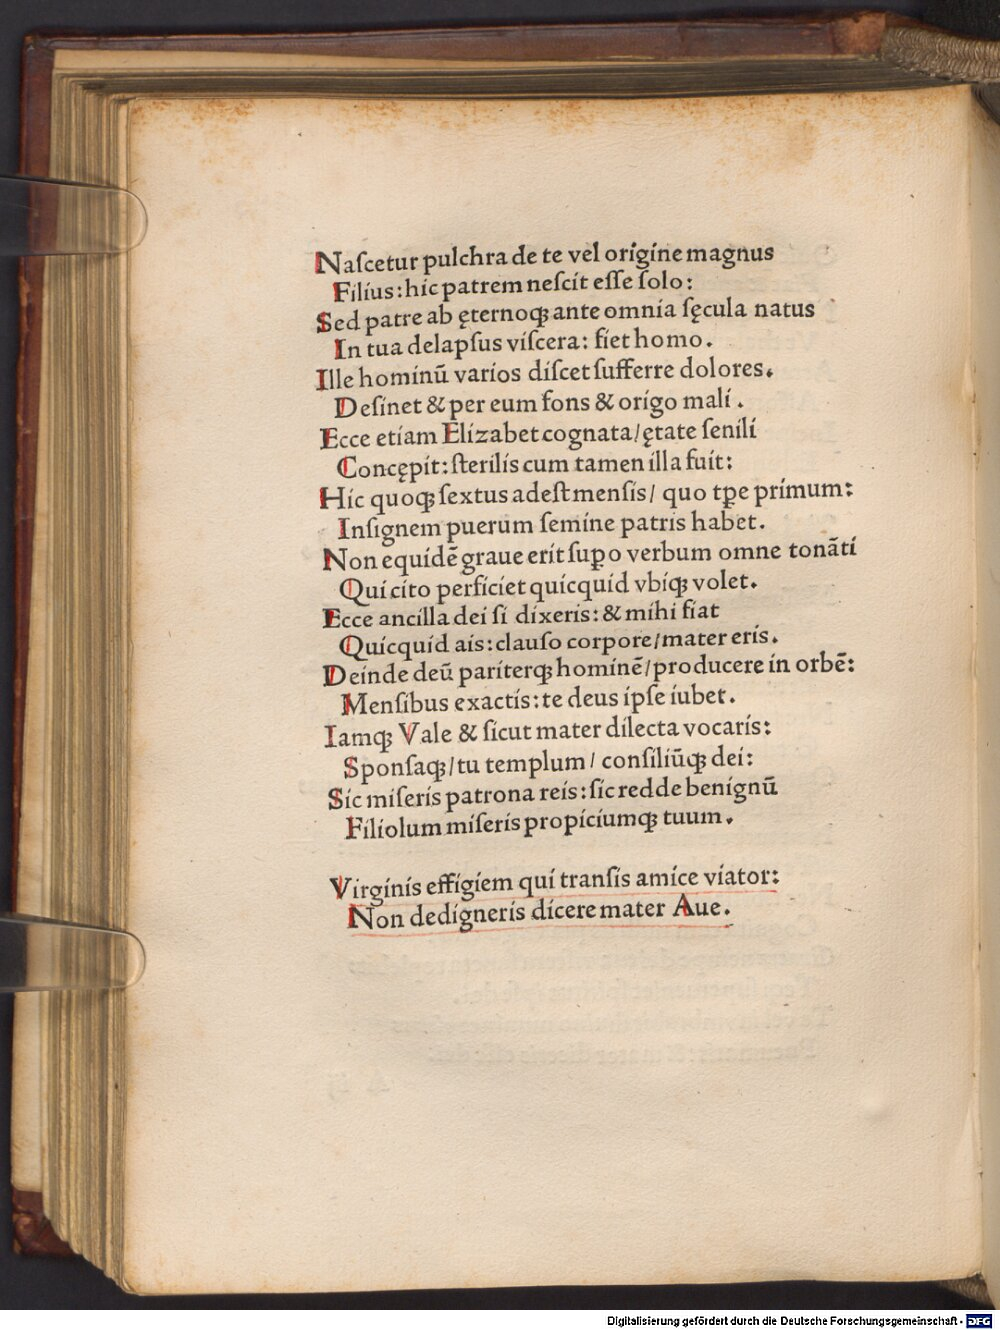 Naſcetur pulchra de te vel origine magnus
Filius: hic patrem neſcit eſſe ſolo:
Sed patre ab ęternoqꝫ ante omnia ſęcula natus
In tua delapſus viſcera: fiet homo.
Ille hominū varios diſcet ſufferre dolores.
Deſinet & per eum fons & origo mali.
Ecce etiam Elizabet cognata/ ętate ſenili
Concępit: ſterilis cum tamen illa fuit:
Hic quoqꝫ ſextus adeſt menſis/ quo tꝑe primum:
Inſignem puerum ſemine patris habet.
Non equidē graue erit ſuꝑo verbum omne tonāti
Qui cito perficiet quicquid vbiqꝫ volet.
Ecce ancilla dei ſi dixeris: & mihi fiat
Quicquid ais: clauſo corpore/ mater eris.
Deinde deū pariterqꝫ hominē/ producere in orbē:
Menſibus exactis: te deus ipſe iubet.
Iamqꝫ Vale & ſicut mater dilecta vocaris:
Sponſaqꝫ/ tu templum/ conſiliūqꝫ dei:
Sic miſeris patrona reis: ſic redde benignū
Filiolum miſeris propiciumqꝫ tuum.
Virginis effigiem qui tranſis amice viator:
Non dedigneris dicere mater Aue.
Digitalisierung gefördert durch die Deutsche Forschungsgemeinschaft - DFG